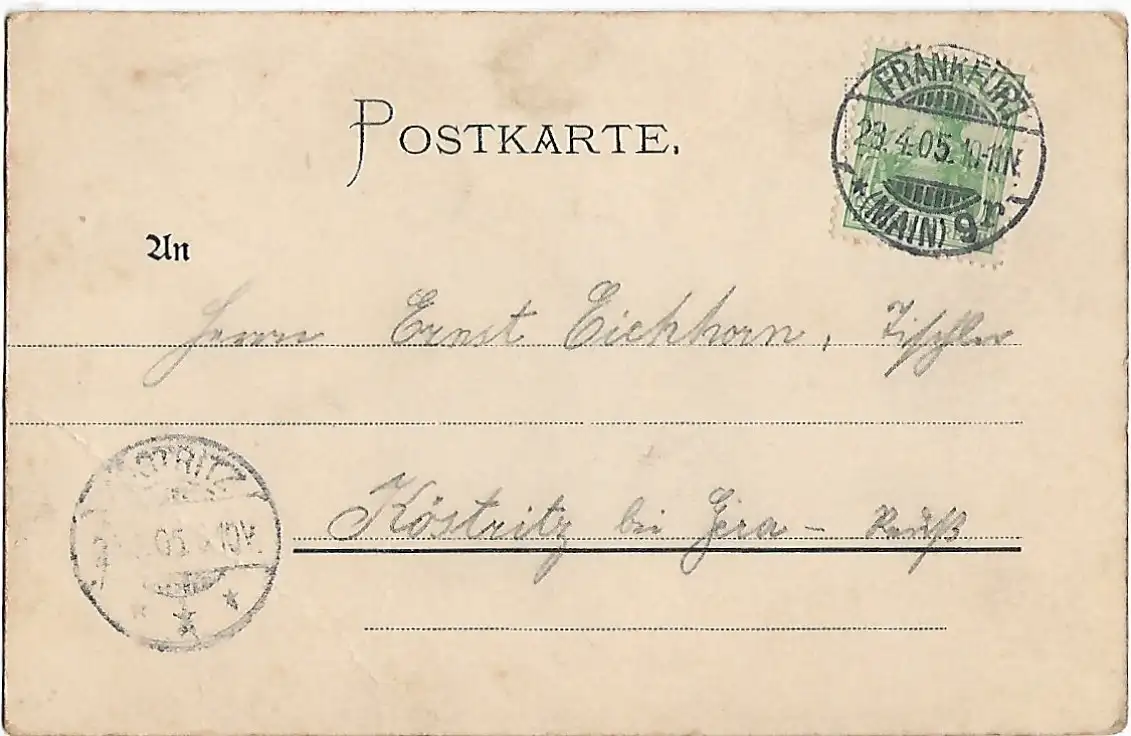 POSTKARTE.
FRANKFURT
23.4.05. 10-11N.
* (MAIN) 9 r
An
Herrn Ernst Eichhorn, Tischler
KÖSTRITZ
05. 10V.
Köstritz bei Gera – Reuß